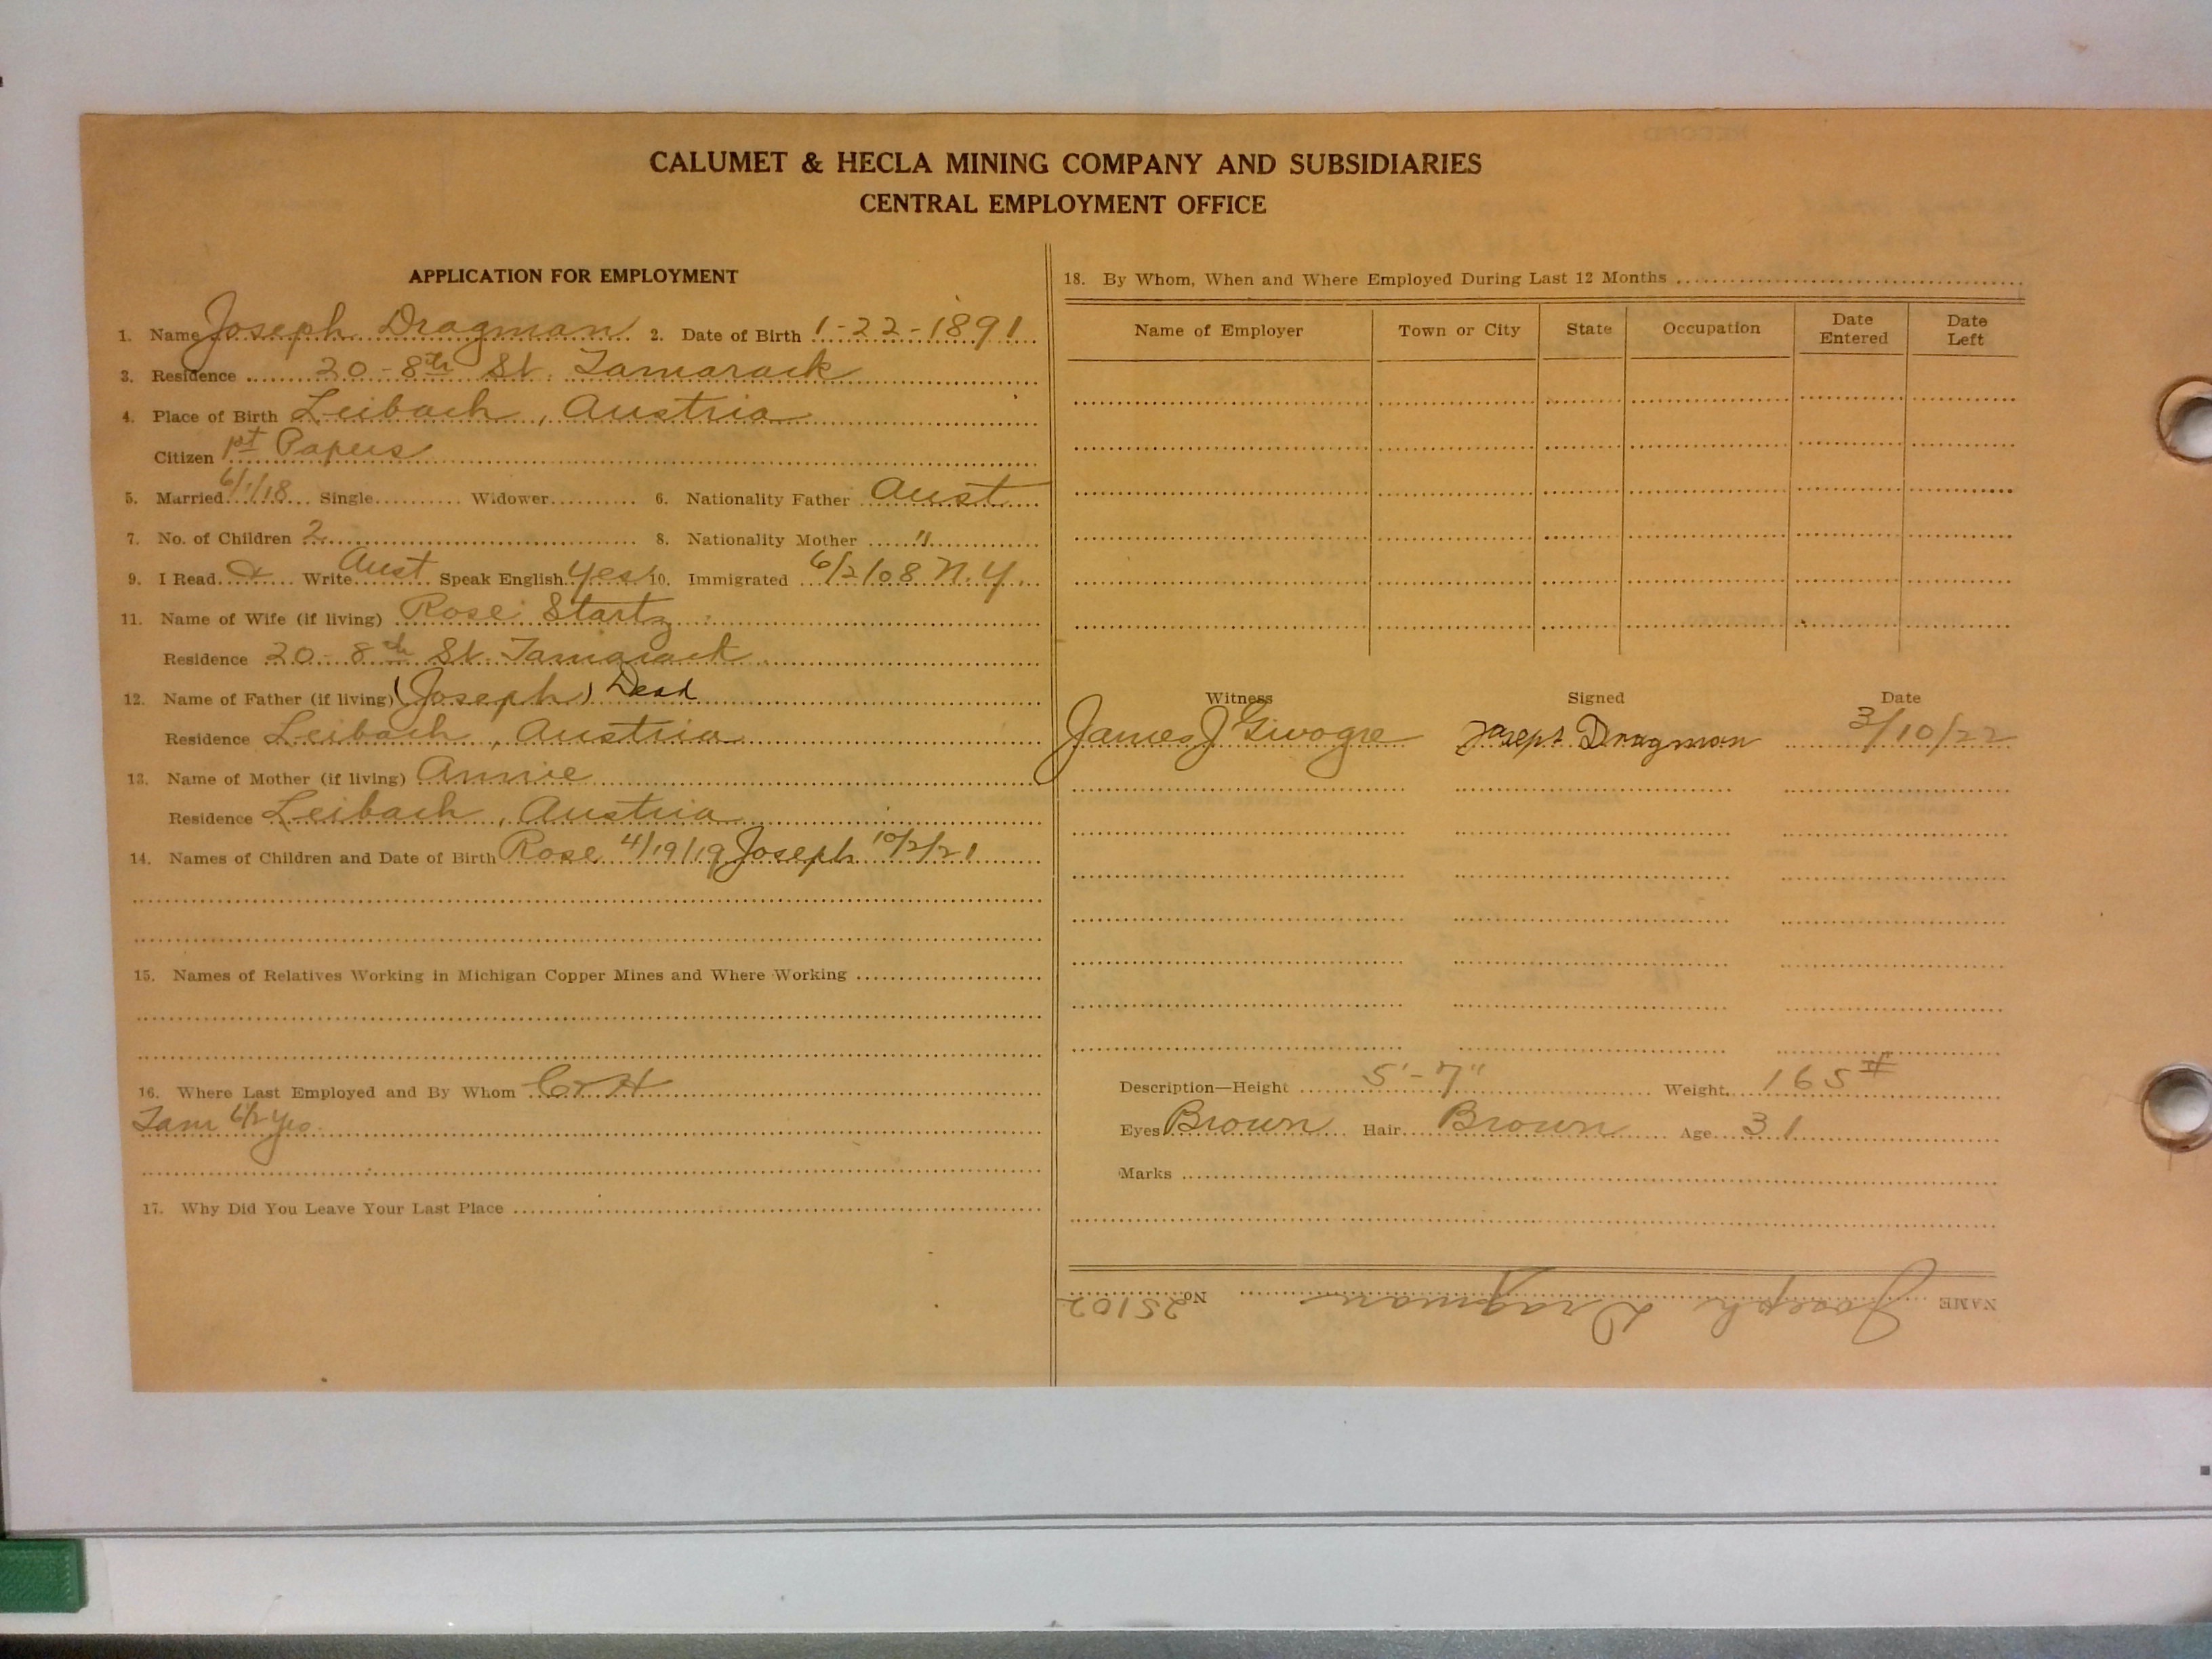 CALUMET & HECLA MINING COMPANY AND SUBSIDIARIES
CENTRAL EMPLOYMENT OFFICE
APPLICATION FOR EMPLOYMENT
1. Name Joseph Dragman 2. Date of Birth 1-22-1891
3. Residence 20-8th St. Tamarack
4. Place of Birth Leibach, Austria
Citizen 1st Papers
5. Married 6/1/18 Single Widower 6. Nationality Father Aust
7. No. of Children 2 8. Nationality Mother "
9. I Read & Write Aust Speak English Yes 10. Immigrated 6/2/08 N.Y.
11. Name of Wife (if living) Rose Startz
Residence 20-8th St. Tamarack
12. Name of Father (if living) (Joseph) Dead
Residence Leibach, Austria
13. Name of Mother (if living) Annie
Residence Leibach, Austria
14. Names of Children and Date of Birth Rose 4/19/19 Joseph 10/2/21
15. Names of Relatives Working in Michigan Copper Mines and Where Working
16. Where Last Employed and By Whom C & H
Tam 6/2 yrs.
17. Why Did You Leave Your Last Place
18. By Whom, When and Where Employed During Last 12 Months
Name of Employer Town or City State Occupation Date Entered Date Left
Witness Signed Date
James J Joseph Dragman 3/10/22
Description—Height 5'-7" Weight 165#
Eyes Brown Hair Brown Age 31
Marks
NAME Joseph Dragman No. 25102